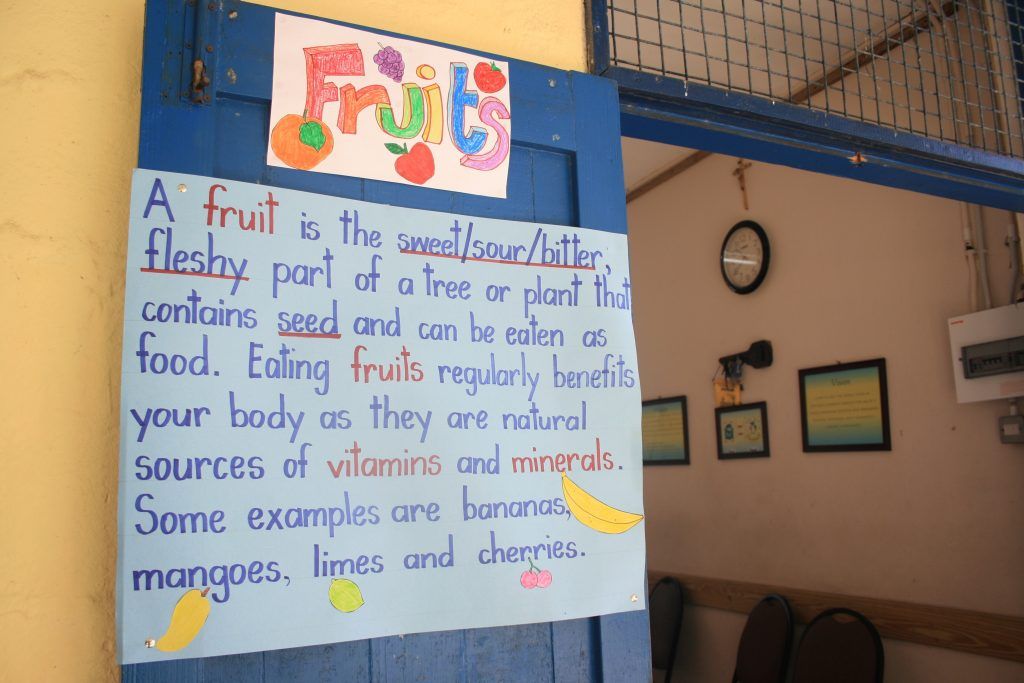 Fruits
A fruit is the sweet/sour/bitter,
fleshy part of a tree or plant that
contains seed and can be eaten as
food. Eating fruits regularly benefits
your body as they are natural
sources of vitamins and minerals.
Some examples are bananas,
mangoes, limes and cherries.
Vision